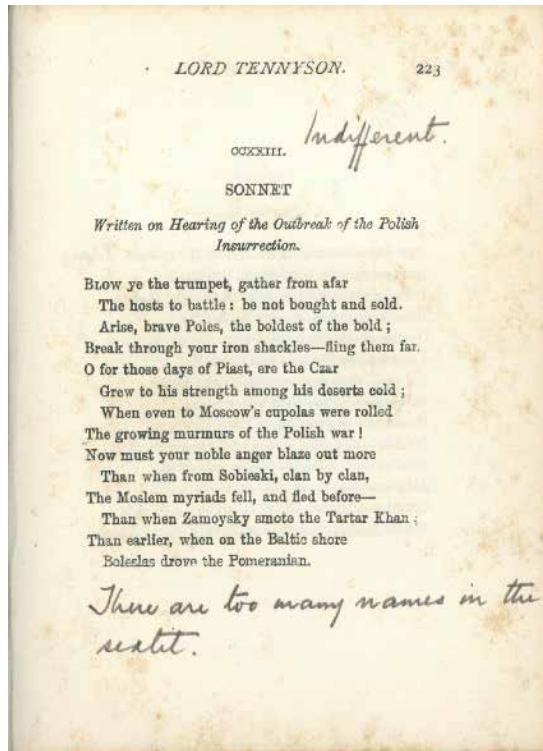 LORD TENNYSON. 223
Indifferent.
CCXXIII.
SONNET
Written on Hearing of the Outbreak of the Polish
Insurrection.
BLOW ye the trumpet, gather from afar
The hosts to battle: be not bought and sold.
Arise, brave Poles, the boldest of the bold;
Break through your iron shackles—fling them far.
O for those days of Piast, ere the Czar
Grew to his strength among his deserts cold;
When even to Moscow's cupolas were rolled
The growing murmurs of the Polish war!
Now must your noble anger blaze out more
Than when from Sobieski, clan by clan,
The Moslem myriads fell, and fled before—
Than when Zamoysky smote the Tartar Khan;
Than earlier, when on the Baltic shore
Boleslas drove the Pomeranian.
There are too many names in the
sextet.